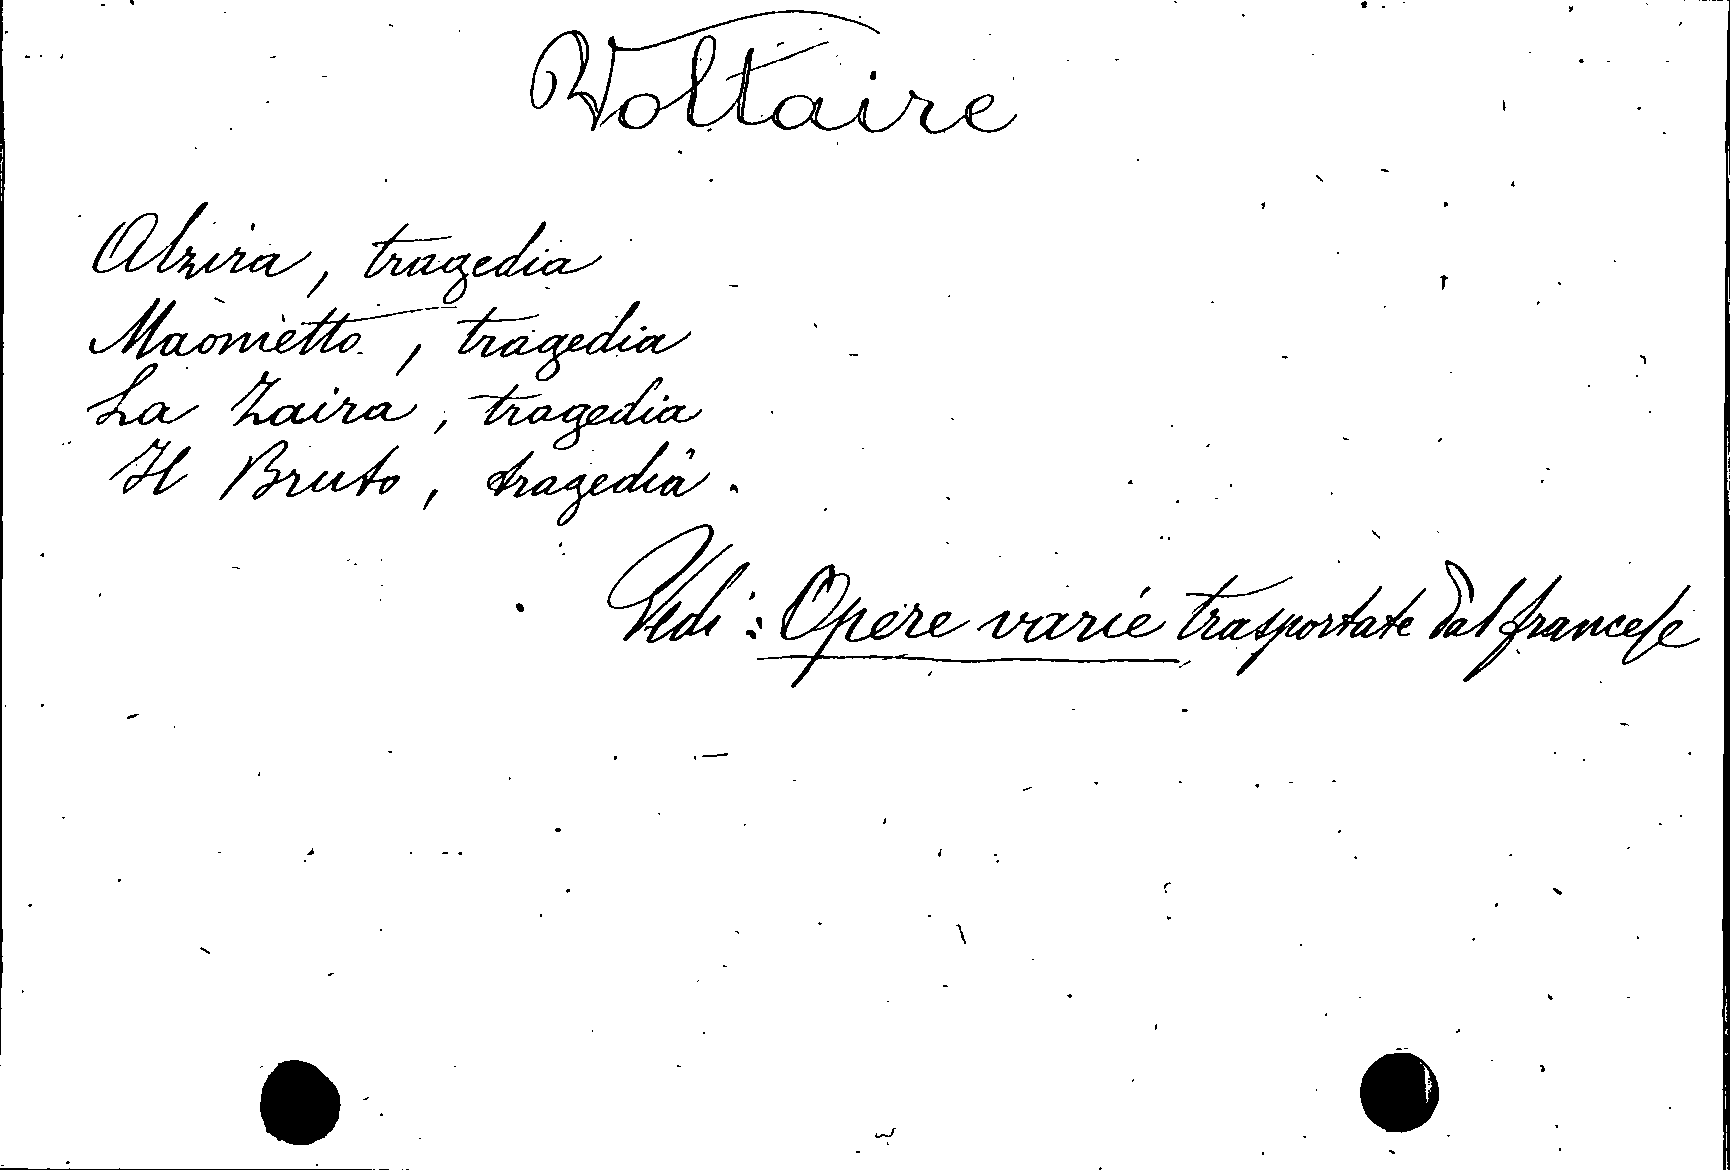 Voltaire
Alzira, tragedia
Maometto, tragedia
La Zaira, tragedia
Il Bruto, tragedia.
Vedi: Opere varie trasportate dal francese